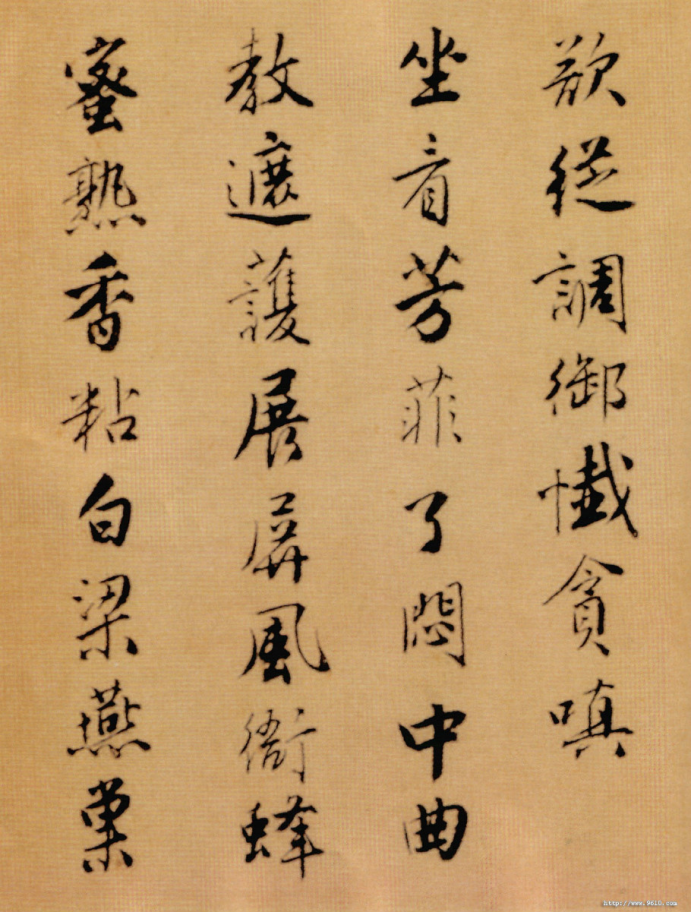 欲從調御懺貪嗔
坐看芳菲了悶中曲
教遮護展屏風衙蜂
蜜熟香粘白梁燕巢
http://www.9610.com